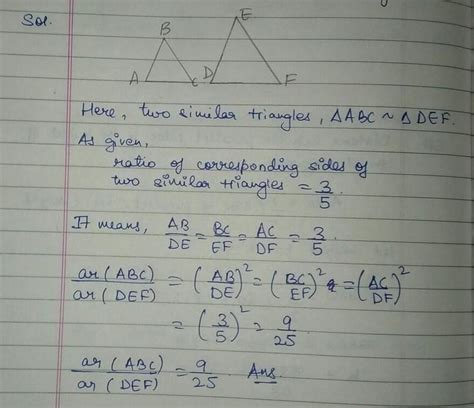 Sol.
B
E
A
C
D
F
Here, two similar triangles, △ABC ~ △DEF.
As given,
ratio of corresponding sides of
two similar triangles = 3/5.
It means, AB/DE = BC/EF = AC/DF = 3/5
ar(ABC)/ar(DEF) = (AB/DE)² = (BC/EF)² = (AC/DF)²
= (3/5)² = 9/25.
ar(ABC)/ar(DEF) = 9/25. Ans.